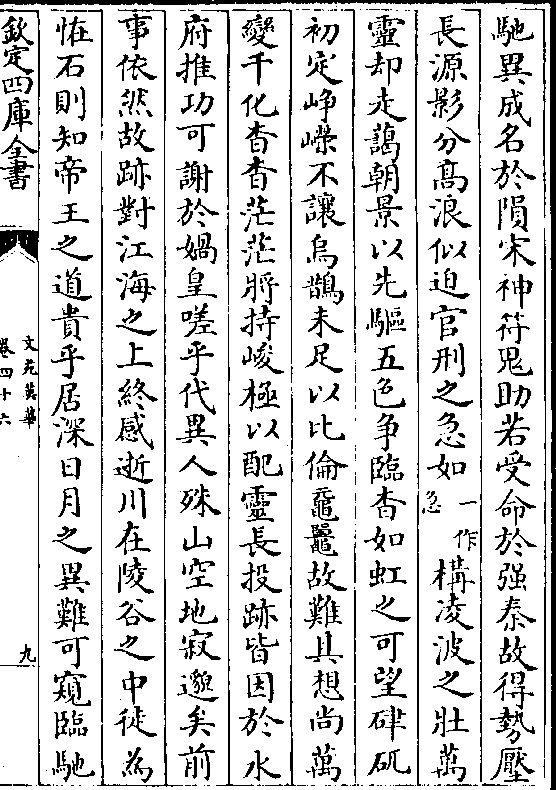 馳異成名於隕宋神符鬼助若受命於强秦故得勢壓
長源影分髙浪似迫官刑之急如一作急構凌波之壯萬
靈却走藹朝景以先驅五色争臨杳如虹之可望硉矹
初定峥嶸不讓烏鵲未足以比倫黿鼉故難具想尚萬
變千化杳杳茫茫將持峻極以配靈長投跡皆因於水
府推功可謝於媧皇嗟乎代異人殊山空地寂邈矣前
事依然故跡對江海之上終感逝川在陵谷之中徒為
恠石則知帝王之道貴乎居深日月之異難可窺臨馳
欽定四庫全書
文苑英華
卷四十六
九